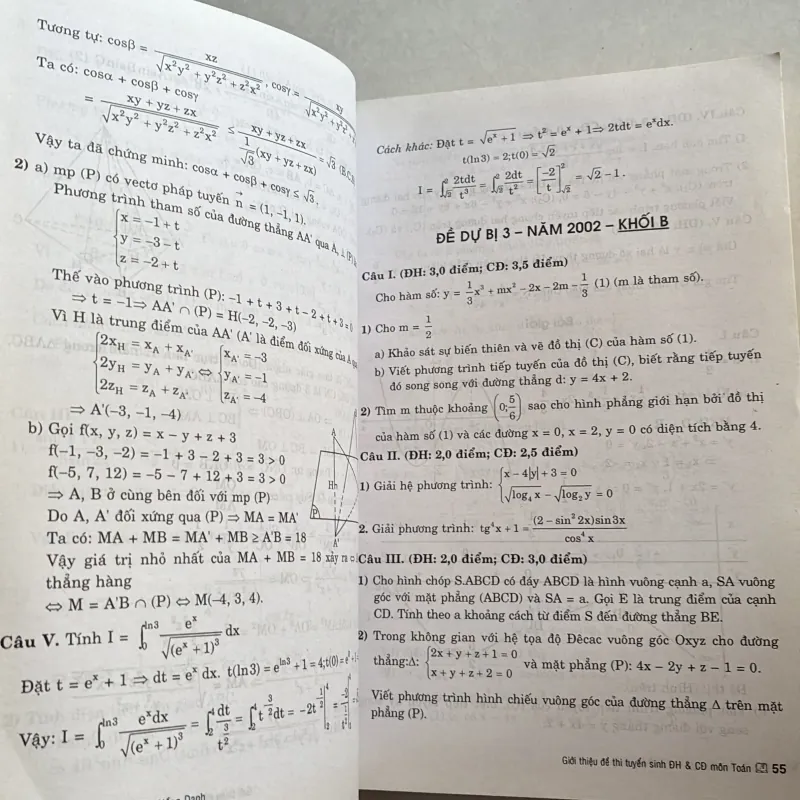 Tương tự: cosβ = xz / √(x²y² + y²z² + z²x²) , cosγ = xy / √(x²y²
Ta có: cosα + cosβ + cosγ
= (xy + yz + zx) / √(x²y² + y²z² + z²x²) ≤ (xy + yz + zx) / ((1/√3)(xy + yz + zx)) = √3
Vậy ta đã chứng minh: cosα + cosβ + cosγ ≤ √3.
2) a) mp (P) có vectơ pháp tuyến n⃗ = (1, −1, 1).
Phương trình tham số của đường thẳng AA' qua A, ⊥ (P)
{ x = −1 + t
y = −3 − t
z = −2 + t
Thế vào phương trình (P): −1 + t + 3 + t − 2 + t + 3 = 0
⇒ t = −1 ⇒ AA' ∩ (P) = H(−2, −2, −3)
Vì H là trung điểm của AA' (A' là điểm đối xứng của A
{ 2x_H = x_A + x_A' { x_A' = −3
2y_H = y_A + y_A' ⇔ y_A' = −1
2z_H = z_A + z_A' z_A' = −4
⇒ A'(−3, −1, −4)
b) Gọi f(x, y, z) = x − y + z + 3
f(−1, −3, −2) = −1 + 3 − 2 + 3 = 3 > 0
f(−5, 7, 12) = −5 − 7 + 12 + 3 = 3 > 0
⇒ A, B ở cùng bên đối với mp (P)
Do A, A' đối xứng qua (P) ⇒ MA = MA'
Ta có: MA + MB = MA' + MB ≥ A'B = 18
Vậy giá trị nhỏ nhất của MA + MB = 18 xảy ra
thẳng hàng
⇔ M = A'B ∩ (P) ⇔ M(−4, 3, 4).
A
H
P
A'
Câu V. Tính I = ∫₀^ln3 eˣ / √((eˣ + 1)³) dx
Đặt t = eˣ + 1 ⇒ dt = eˣ dx. t(ln3) = e^ln3 + 1 = 4; t(0) =
Vậy: I = ∫₀^ln3 eˣdx / √((eˣ + 1)³) = ∫₂⁴ dt / t^(3/2) = ∫₂⁴ t^(−3/2) dt = −2t^(−1/2) |₂⁴ =
Cách khác: Đặt t = √(eˣ + 1) ⇒ t² = eˣ + 1 ⇒ 2tdt = eˣdx.
t(ln3) = 2; t(0) = √2
I = ∫_√2^2 2tdt / t³ = ∫_√2^2 2dt / t² = [−2 / t]_√2^2 = √2 − 1.
ĐỀ DỰ BỊ 3 – NĂM 2002 – KHỐI B
Câu I. (ĐH: 3,0 điểm; CĐ: 3,5 điểm)
Cho hàm số: y = 1/3 x³ + mx² − 2x − 2m − 1/3 (1) (m là tham số).
1) Cho m = 1/2
a) Khảo sát sự biến thiên và vẽ đồ thị (C) của hàm số (1).
b) Viết phương trình tiếp tuyến của đồ thị (C), biết rằng tiếp tuyến
đó song song với đường thẳng d: y = 4x + 2.
2) Tìm m thuộc khoảng (0; 5/6) sao cho hình phẳng giới hạn bởi đồ thị
của hàm số (1) và các đường x = 0, x = 2, y = 0 có diện tích bằng 4.
Câu II. (ĐH: 2,0 điểm; CĐ: 2,5 điểm)
1) Giải hệ phương trình: { x − 4|y| + 3 = 0
√(log₄ x) − √(log₂ y) = 0
2. Giải phương trình: tg⁴x + 1 = (2 − sin² 2x)sin3x / cos⁴ x
Câu III. (ĐH: 2,0 điểm; CĐ: 3,0 điểm)
1) Cho hình chóp S.ABCD có đáy ABCD là hình vuông cạnh a, SA vuông
góc với mặt phẳng (ABCD) và SA = a. Gọi E là trung điểm của cạnh
CD. Tính theo a khoảng cách từ điểm S đến đường thẳng BE.
2) Trong không gian với hệ tọa độ Đêcac vuông góc Oxyz cho đường
thẳng:Δ: { 2x + y + z + 1 = 0
x + y + z + 2 = 0 và mặt phẳng (P): 4x − 2y + z − 1 = 0.
Viết phương trình hình chiếu vuông góc của đường thẳng Δ trên mặt
phẳng (P).
Giới thiệu đề thi tuyển sinh ĐH & CĐ môn Toán 55